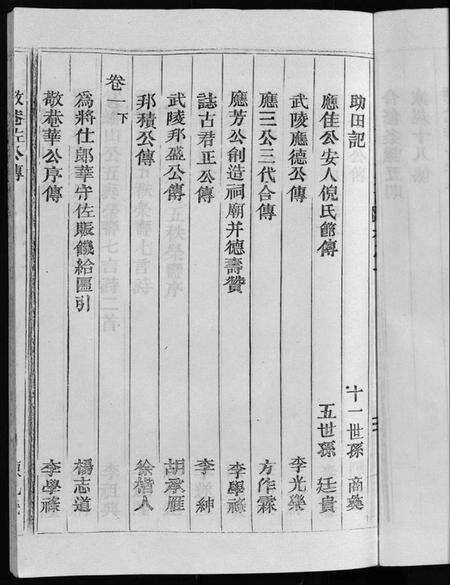 助田記 十一世孫 商奠
應佳公安人倪氏節傳 五世孫 廷貴
武陵應德公傳 李光欒
應三公三代合傳 方作霖
應芳公創造祠廟并德壽贊 李學祿
誌古君正公傳 李 紳
武陵邦盛公傳 胡承雁
邦積公傳 徐楷人
卷一下
爲將仕郎華守佐賑饑給匾引 楊志道
敬菴華公序傳 李學祿
敬菴左公傳